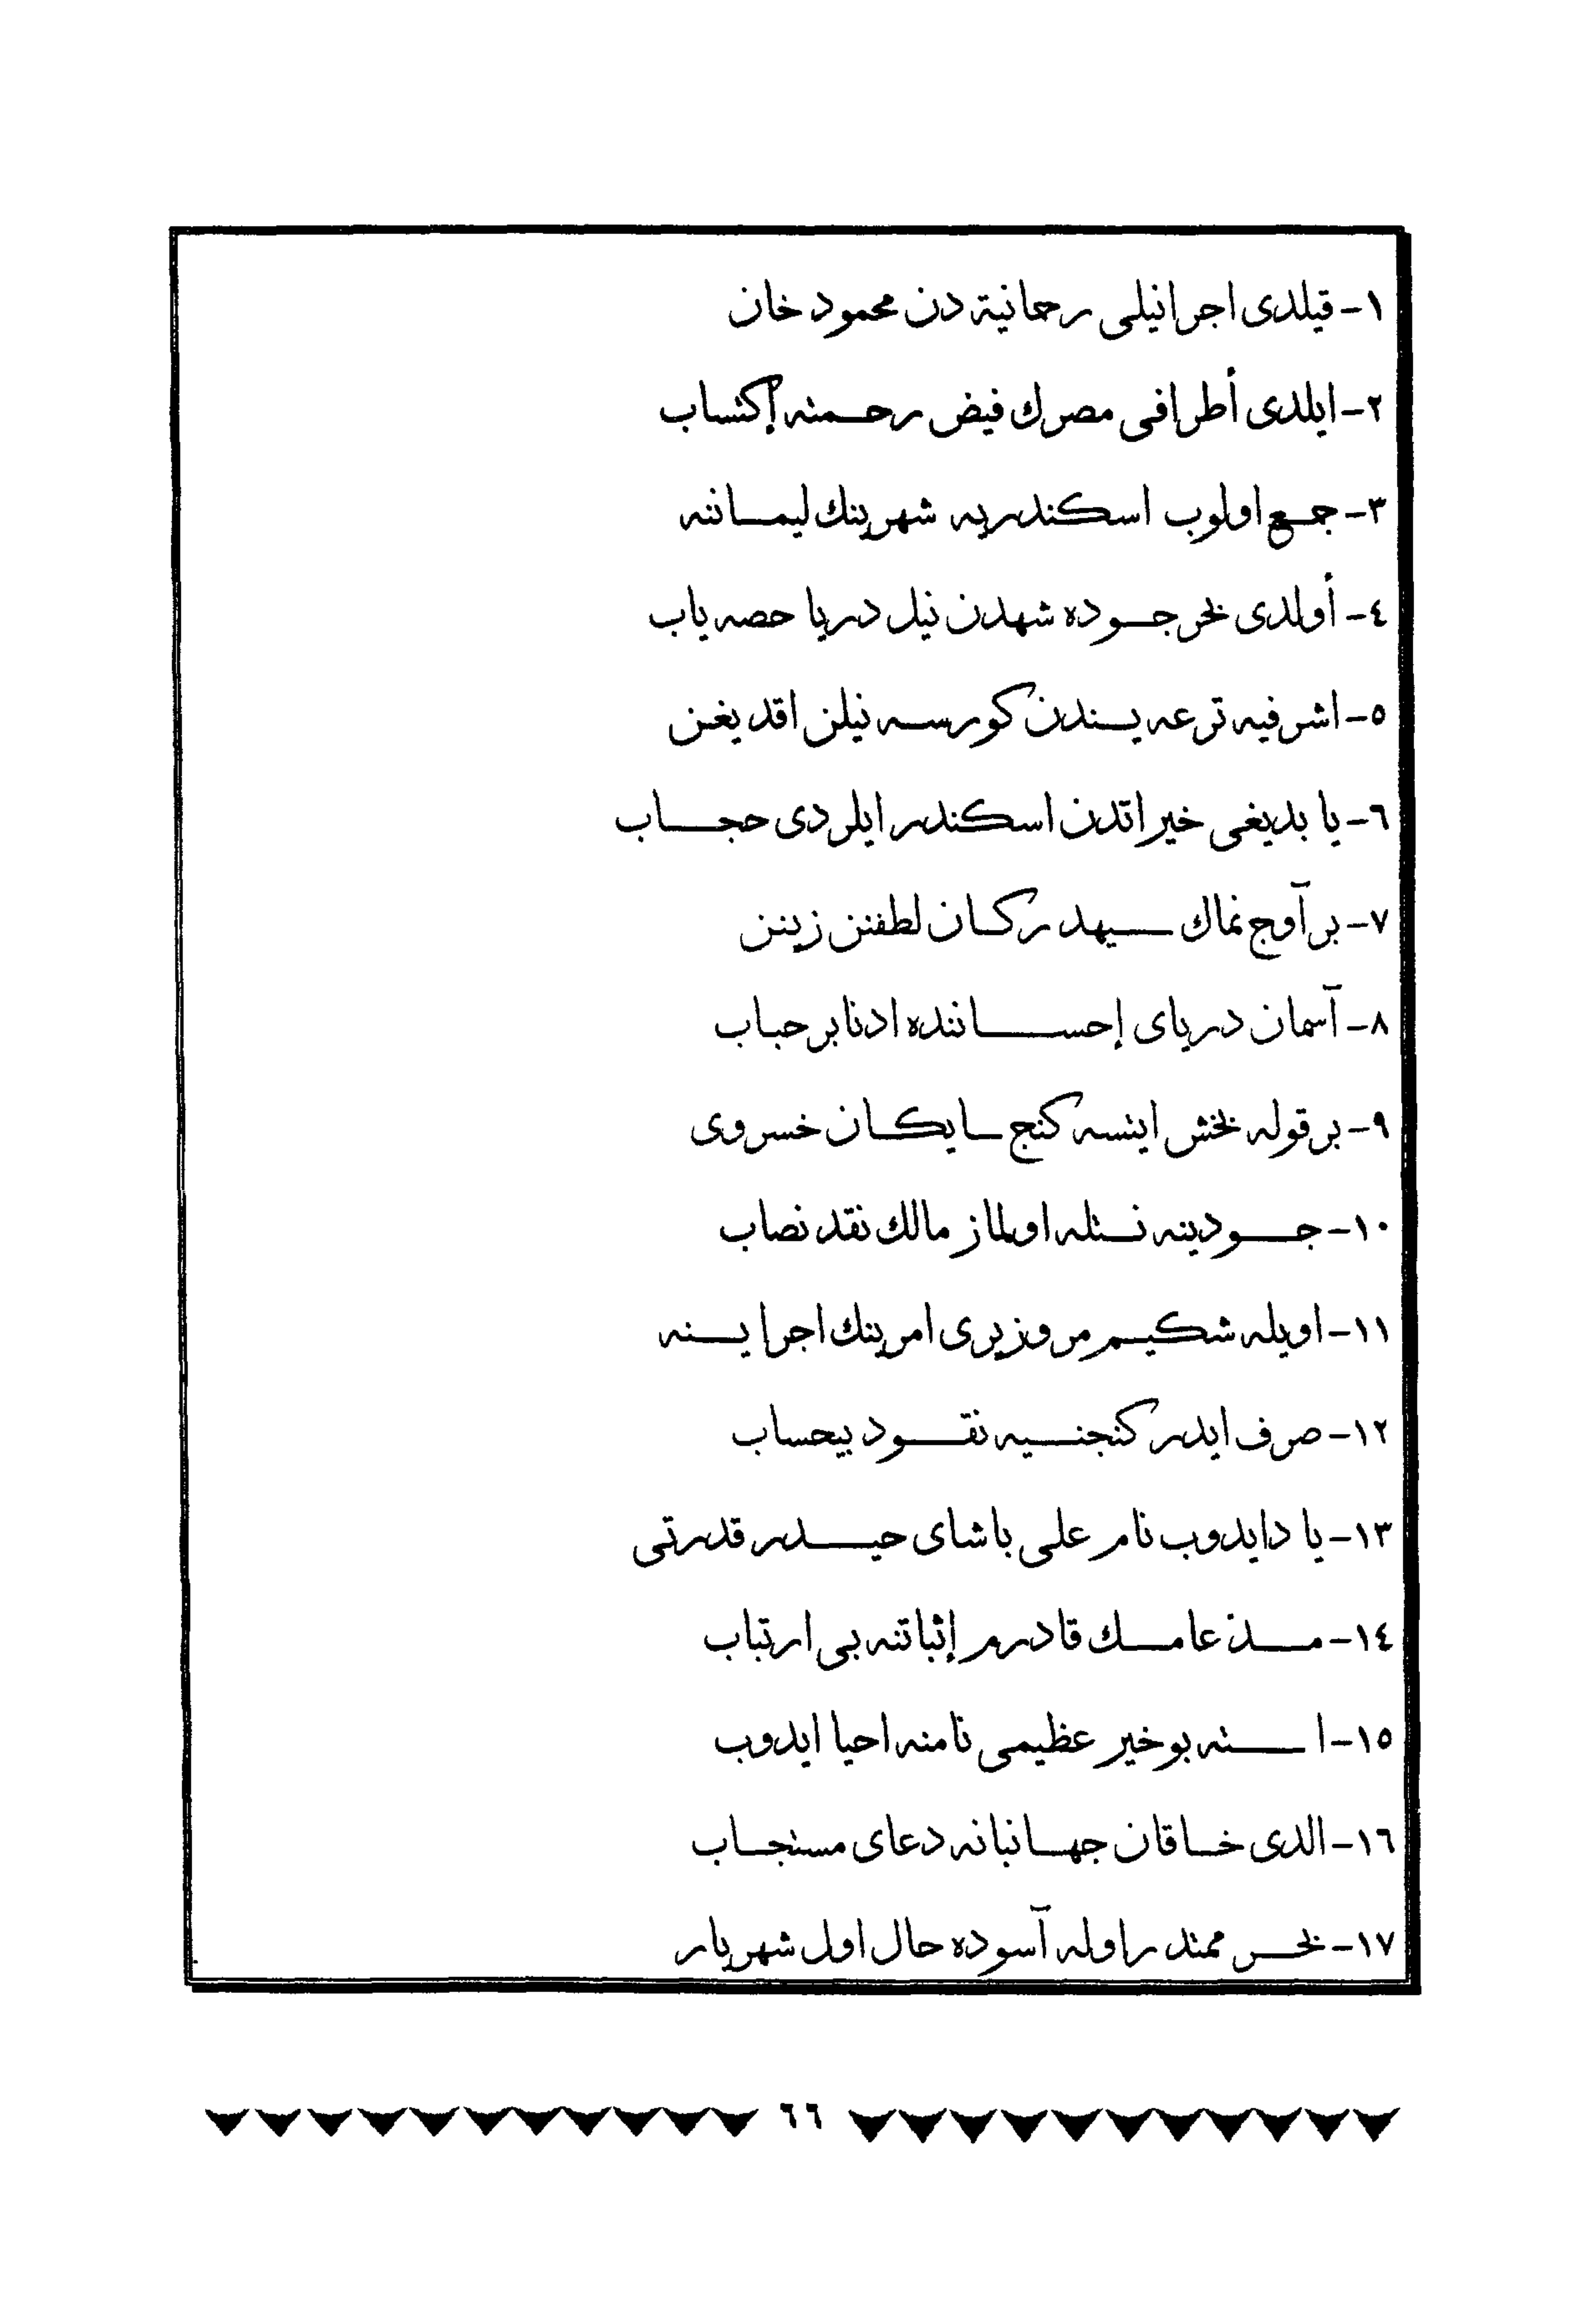 ١- قيلدى اجرا نيلى رحمانية دن محمود خان
٢- ايلدى أطرافى مصرك فيض رحمته إكتساب
٣- جمع اولوب اسكندريه شهرينك ليماننه
٤- أولدى بخر جوده شهدن نيل دريا حصه ياب
٥- اشرفيه ترعه يسندن كورسه نيلن اقديغن
٦- يا بديغى خيراتدن اسكندر ايلردى حجاب
٧- بر آوج نماك سيهدر كان لطفنن زينن
٨- آسمان درياى إحساننده ادنا بر حباب
٩- بر قوله بخش ايتسه كنج سايكان خسروى
١٠- جودينه نستله اولماز مالك نقد نصاب
١١- اويله شكيم مر وزيرى امرينك اجرا ينه
١٢- صرف ايدر كنجنيه نقود بيحساب
١٣- يا دايدوب نام على باشاى حيدر قدرتى
١٤- مدن عامك قادرم إثباتنه بى ارتباب
١٥- ا سته بو خير عظيمى نامنه احيا ايدوب
١٦- الدى خاقان جهانبانه دعاى مستجاب
١٧- بخر ممتد ر اوله آسوده حال اول شهريار
٦٦